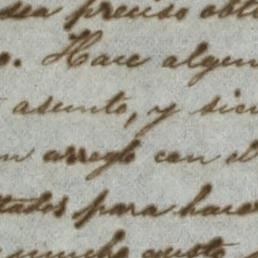 sea preciso obt
o. Hace algun
asunto, y sien
n arreglo con el
tados para hacer
mucho gusto